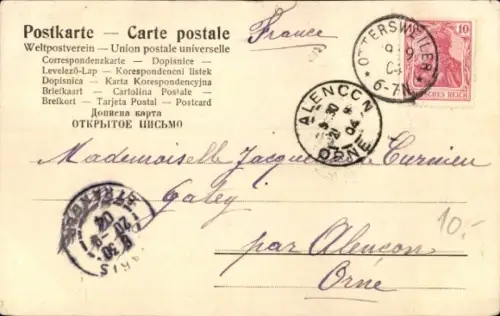 Postkarte — Carte postale
Weltpostverein — Union postale universelle
Correspondenzkarte — Dopisnice
Levelező-Lap — Korespondencni listek
Dopisnica — Karta Korespondencyjna
Briefkaart — Cartolina Postale
Brefkort — Tarjeta Postal — Postcard
Дописна карта
ОТКРЫТОЕ ПИСЬМО
France
* OTTERSWEILER *
6-7N
10
DEUTSCHES REICH
ALENCON
04
ORNE
Mademoiselle
Gatey
par Alençon
Orne
PARIS
ETRANGER
20 - 9
04
10.-